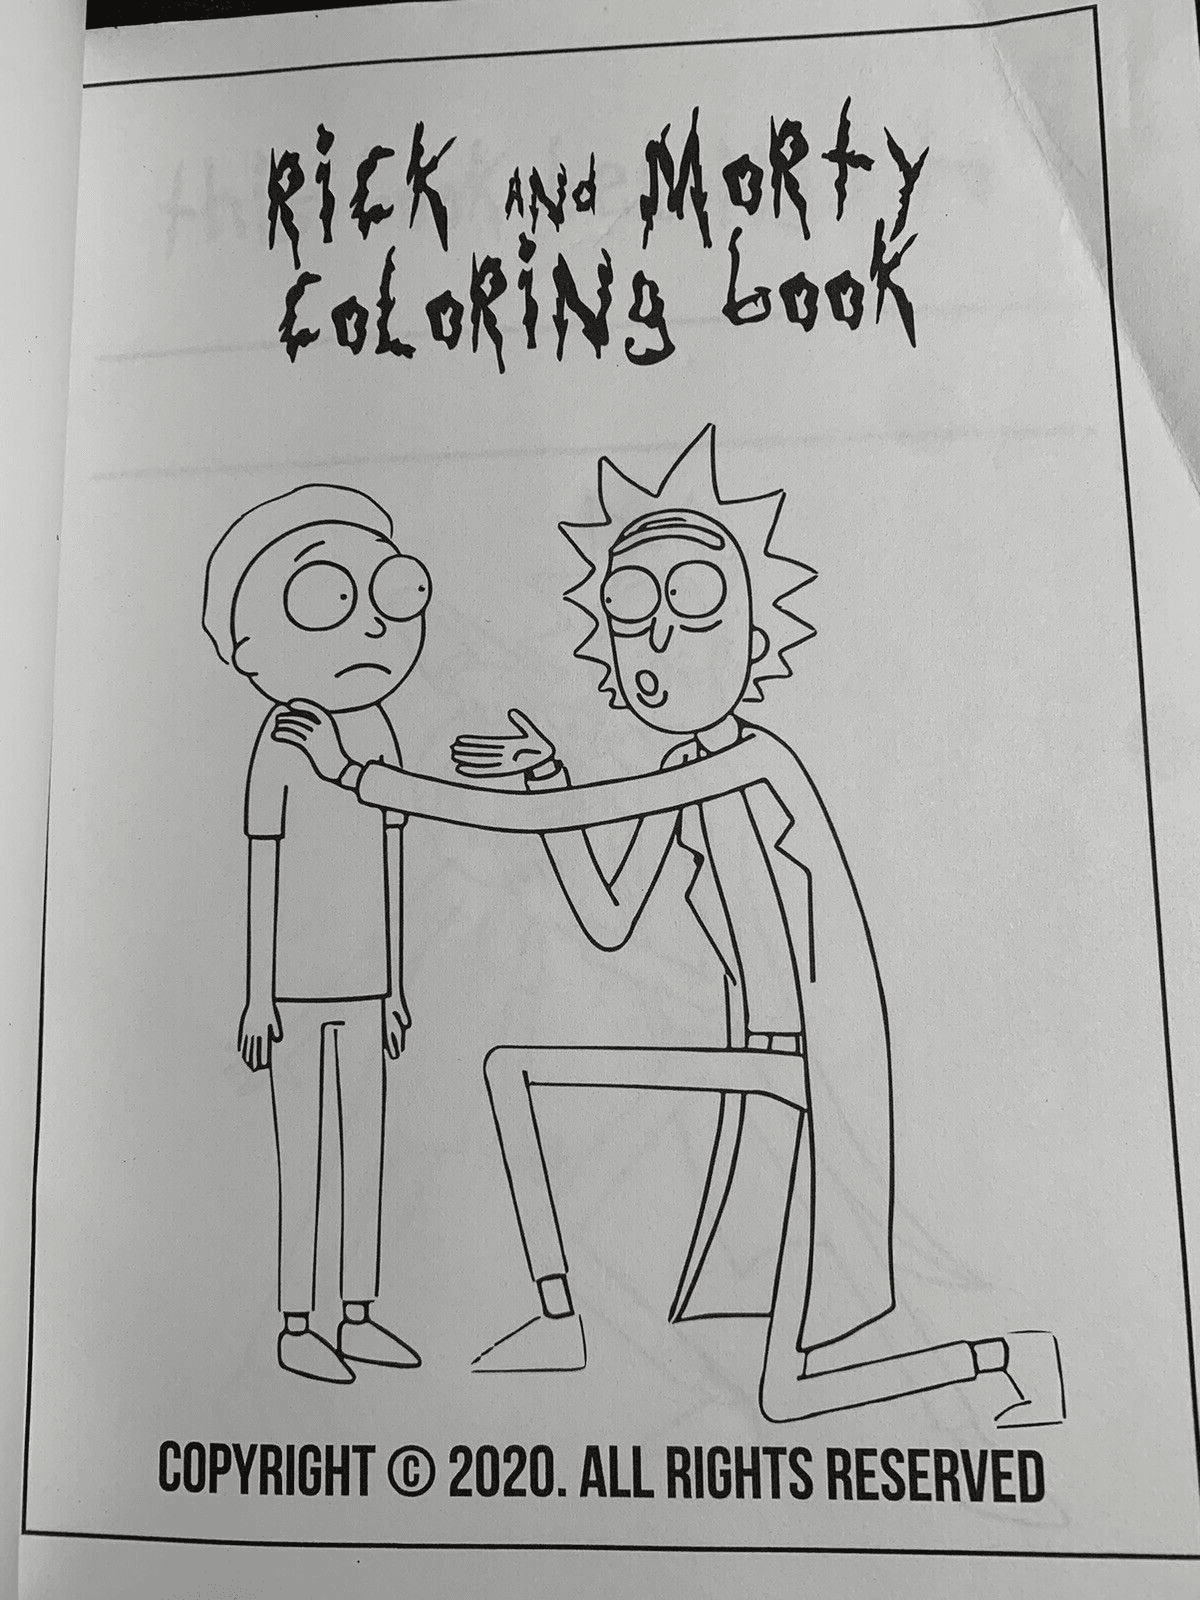 Rick and Morty
Coloring book
COPYRIGHT © 2020. ALL RIGHTS RESERVED